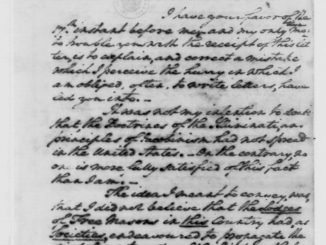 I have your favor of the
17th instant before me; and my only mo-
tive to trouble you with the receipt of this let-
ter, is to explain, and correct a mistake
which I perceive the hurry in which I
am obliged, often, to write letters, have
led you into.
It was not my intention to doubt
that the Doctrines of the Iluminati, and
principles of Jacobinism had not spread
in the United States. On the contrary, no
one is more fully satisfied of this fact
than I am.
The idea I meant to convey, was,
that I did not believe that the Lodges
of Free Masons in this Country had, as
Societies, endeavoured to propagate the